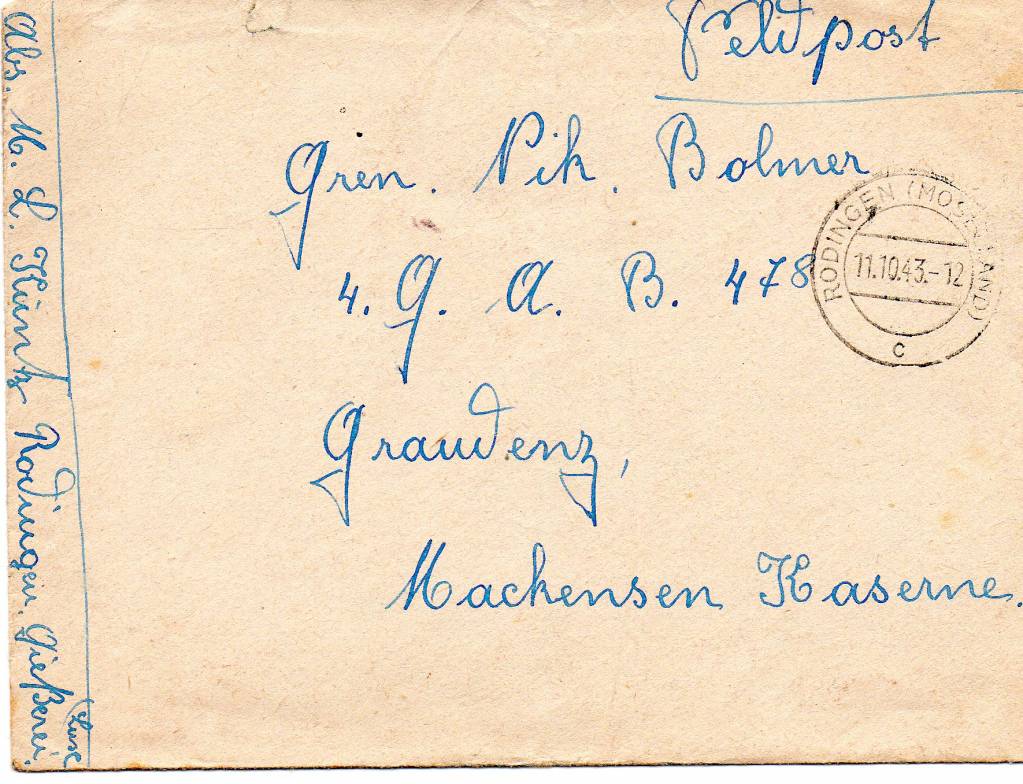 Feldpost
Gren. Nik. Bolmer
4. G. A. B. 478
Graudenz,
Mackensen Kaserne.
RODINGEN (MOSELLAND)
11.10.43.-12
c
Abs. M. L. Küntz Rodingen. Gießerei.
(Lux